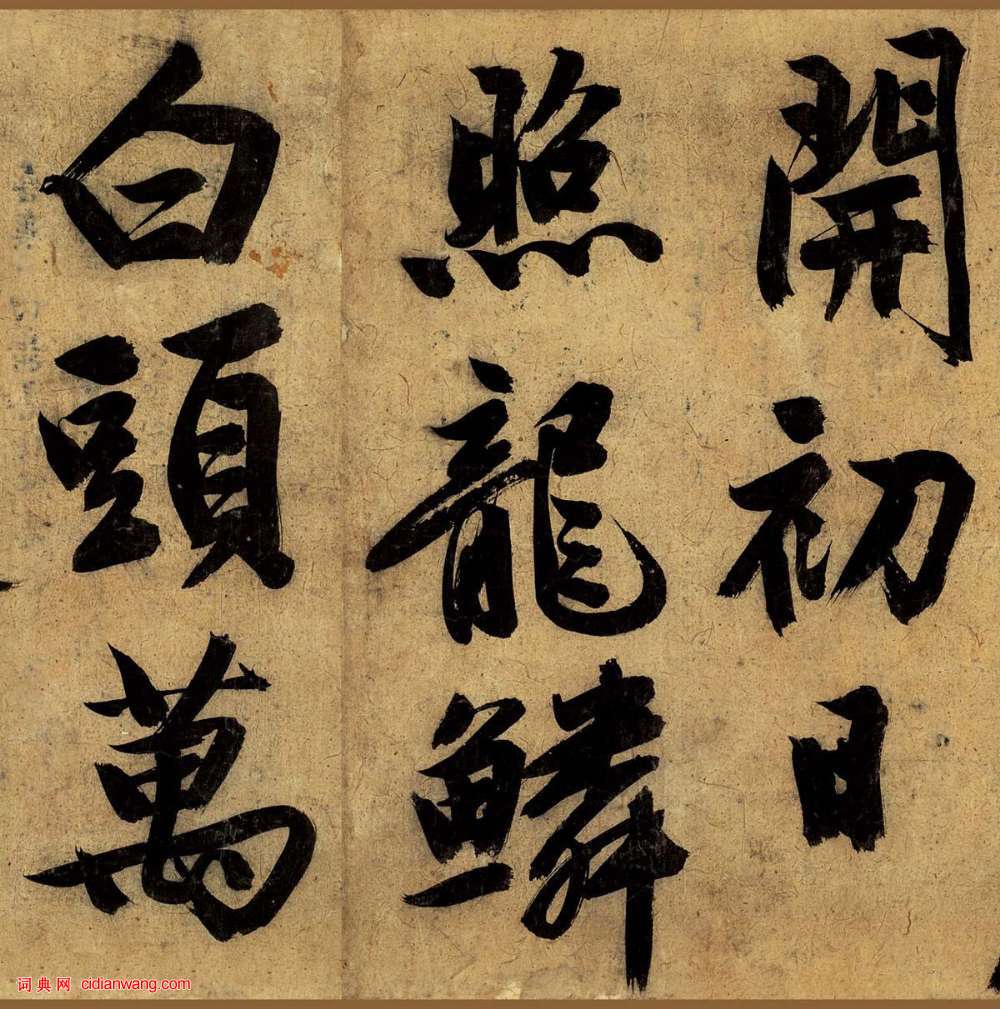 開初日
照龍鱗
白頭萬
词典网 cidianwang.com